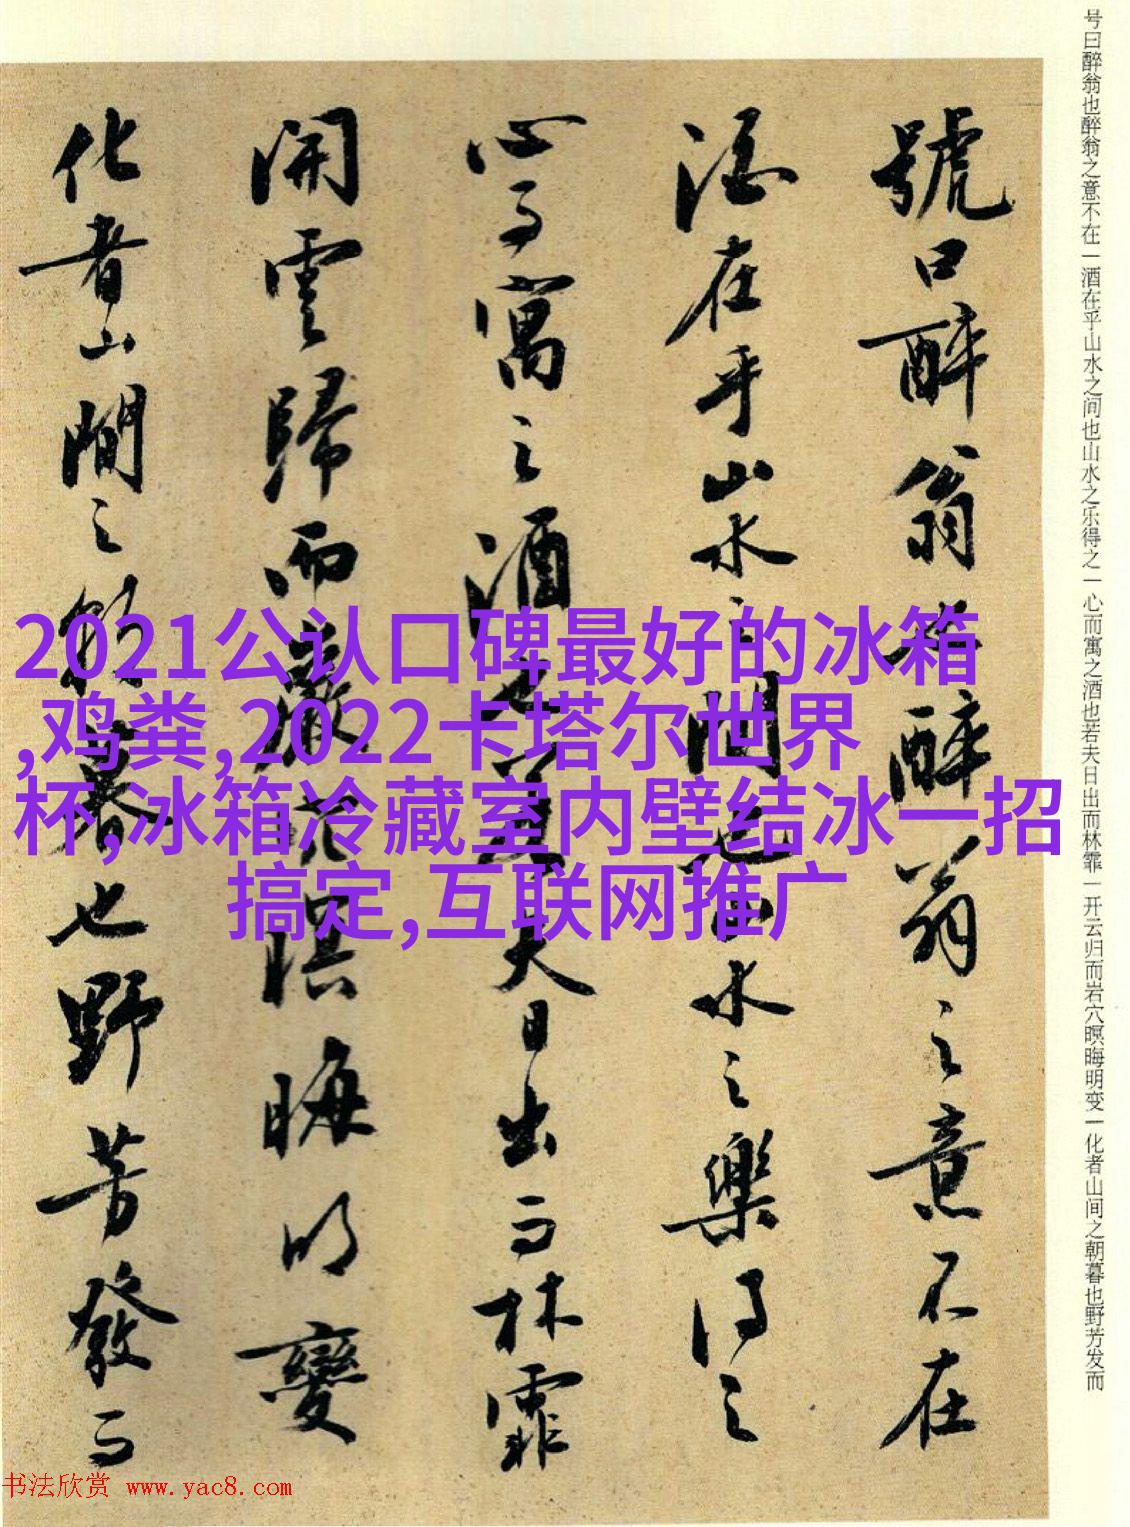 号曰醉翁也醉翁之意不在一酒在乎山水之间也山水之乐得之一心而寓之酒也若夫日出而林霏一开云归而岩穴暝晦明变一化者山间之朝暮也野芳发而
號曰醉翁也醉翁之意不在
酒在乎山水之間也山水之樂得之
心而寓之酒也若夫日出而林霏
開雲歸而巖穴暝晦明變
化者山間之朝暮也野芳發而
2021公认口碑最好的冰箱
,鸡粪,2022卡塔尔世界
杯,冰箱冷藏室内壁结冰一招
搞定,互联网推广
书法欣赏 www.yac8.com